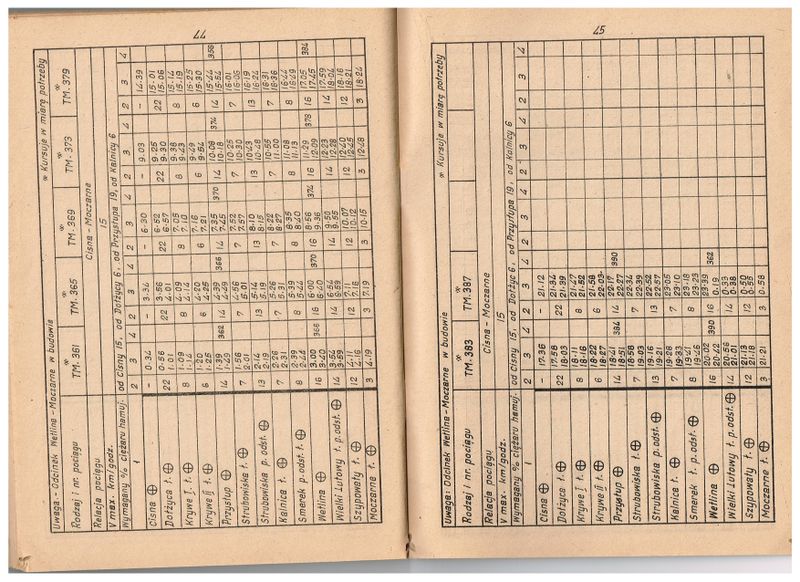 44
Uwaga - Odcinek Wetlina - Moczarne w budowie * Kursuje w miarę potrzeby
Rodzaj i nr. pociągu TM. 361 TM. 365 TM. 369 * TM. 373 * TM. 379
Relacja pociągu Cisna - Moczarne
V max. km/godz. 15
Wymagany % ciężaru hamuj. od Cisny 15, od Dołżycy 6, od Przysłupa 19, od Kalnicy 6
1 2 3 4 2 3 4 2 3 4 2 3 4 2 3 4
Cisna ⊕ - 0.34 - 3.34 - 6.30 - 9.03 - 14.39
Dołżyca ł. ⊕ 22 0.56 1.01 22 3.56 4.01 22 6.52 6.57 22 9.25 9.30 22 15.01 15.06
Krywe I ł. ⊕ 8 1.09 1.14 8 4.09 4.14 8 7.05 7.10 8 9.38 9.43 8 15.14 15.19
Krywe II ł. ⊕ 6 1.20 1.25 6 4.20 4.25 6 7.16 7.21 6 9.49 9.54 6 15.25 15.30
Przysłup ⊕ 14 1.39 1.49 362 14 4.39 4.49 366 14 7.35 7.45 370 14 10.08 10.18 374 14 15.44 15.54 356
Strubowiska ł. ⊕ 7 1.56 2.01 7 4.56 5.01 7 7.52 7.57 7 10.25 10.30 7 16.01 16.06
Strubowiska p. odst. ⊕ 13 2.14 2.19 13 5.14 5.19 13 8.10 8.15 13 10.43 10.48 13 16.19 16.24
Kalnica ł. ⊕ 7 2.26 2.31 7 5.26 5.31 7 8.22 8.27 7 10.55 11.00 7 16.31 16.36
Smerek p. odst. ⊕ 8 2.39 2.44 8 5.39 5.44 8 8.35 8.40 8 11.08 11.13 8 16.44 16.49
Wetlina ⊕ 16 3.00 3.40 366 16 6.00 6.40 370 16 8.56 9.36 374 16 11.29 12.09 378 16 17.05 17.45 384
Wielki Lutowy ł. ⊕ 14 3.54 3.59 14 6.54 6.59 14 9.50 9.55 14 12.23 12.28 14 17.59 18.04
Szypowaty ł. ⊕ 12 4.11 4.16 12 7.11 7.16 12 10.07 10.12 12 12.40 12.45 12 18.16 18.21
Moczarne ł. ⊕ 3 4.19 3 7.19 3 10.15 3 12.48 3 18.24
45
Uwaga: Odcinek Wetlina - Moczarne w budowie * Kursuje w miarę potrzeby
Rodzaj i nr. pociągu * TM. 383 * TM. 387
Relacja pociągu Cisna - Moczarne
V max. km/godz. 15
Wymagany % ciężaru hamuj. od Cisny 15, od Dołżyc 6, od Przysłupa 19, od Kalnicy 6
1 2 3 4 2 3 4 2 3 4 2 3 4 2 3 4
Cisna ⊕ - 17.36 - 21.12
Dołżyca ł. ⊕ 22 17.58 18.03 22 21.34 21.39
Krywe I ł. ⊕ 8 18.11 18.16 8 21.47 21.52
Krywe II ł. ⊕ 6 18.22 18.27 6 21.58 22.03
Przysłup ⊕ 14 18.41 18.51 384 14 22.17 22.27 390
Strubowiska ł. ⊕ 7 18.58 19.03 7 22.34 22.39
Strubowiska p. odst. ⊕ 13 19.16 19.21 13 22.52 22.57
Kalnica ł. ⊕ 7 19.28 19.33 7 23.05 23.10
Smerek ł. p. odst. ⊕ 8 19.41 19.46 8 23.18 23.23
Wetlina ⊕ 16 20.02 20.42 390 16 23.39 0.19 362
Wielki Lutowy ł. p. odst. ⊕ 14 20.56 21.01 14 0.33 0.38
Szypowaty ł. ⊕ 12 21.13 21.18 12 0.50 0.55
Moczarne ł. ⊕ 3 21.21 3 0.58